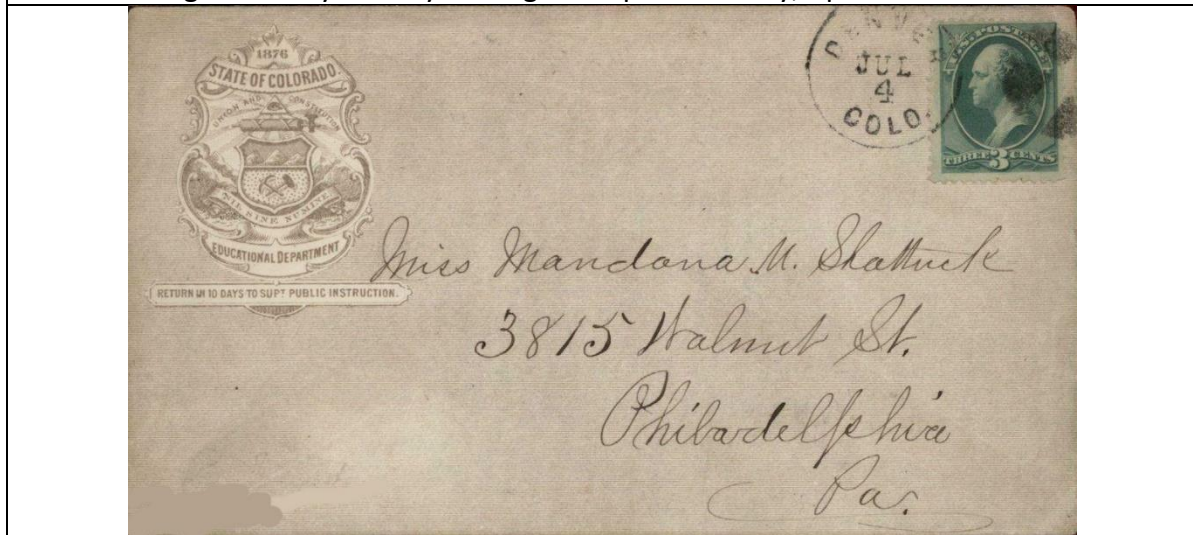 1876
STATE OF COLORADO.
UNION AND CONSTITUTION
NIL SINE NUMINE
EDUCATIONAL DEPARTMENT
RETURN IN 10 DAYS TO SUPT PUBLIC INSTRUCTION.
DENVER
JUL
4
COLO.
U.S. POSTAGE
THREE 3 CENTS
Miss Mandana M. Shattuck
3815 Walnut St.
Philadelphia
Pa.